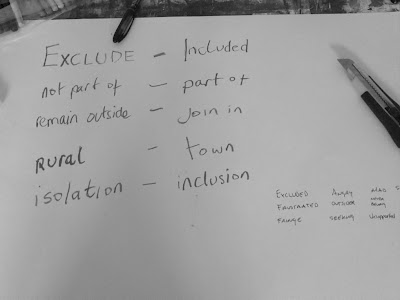 EXCLUDE - Included
not part of - part of
remain outside - Join in
RURAL - town
isolation - inclusion
EXCLUDED ANGRY
FRUSTRATED OUTSIDER
FRINGE SEEKING Unsupported